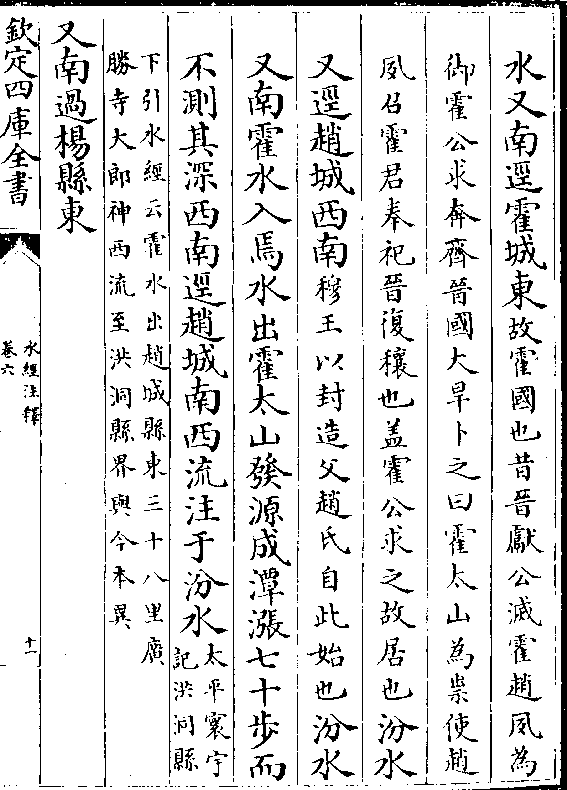 水又南逕霍城東故霍國也昔晉獻公滅霍趙夙為
御霍公求奔齊晉國大旱卜之曰霍太山為祟使趙
夙召霍君奉祀晉復穰也盖霍公求之故居也汾水
又逕趙城西南穆王以封造父趙氏自此始也汾水
又南霍水入焉水出霍太山發源成潭漲七十步而
不測其深西南逕趙城南西流注于汾水太平寰宇
記洪洞縣
下引水經云霍水出趙城縣東三十八里廣
勝寺大郎神西流至洪洞縣界與今本異
又南過楊縣東
欽定四庫全書
水經注釋
卷六
十一